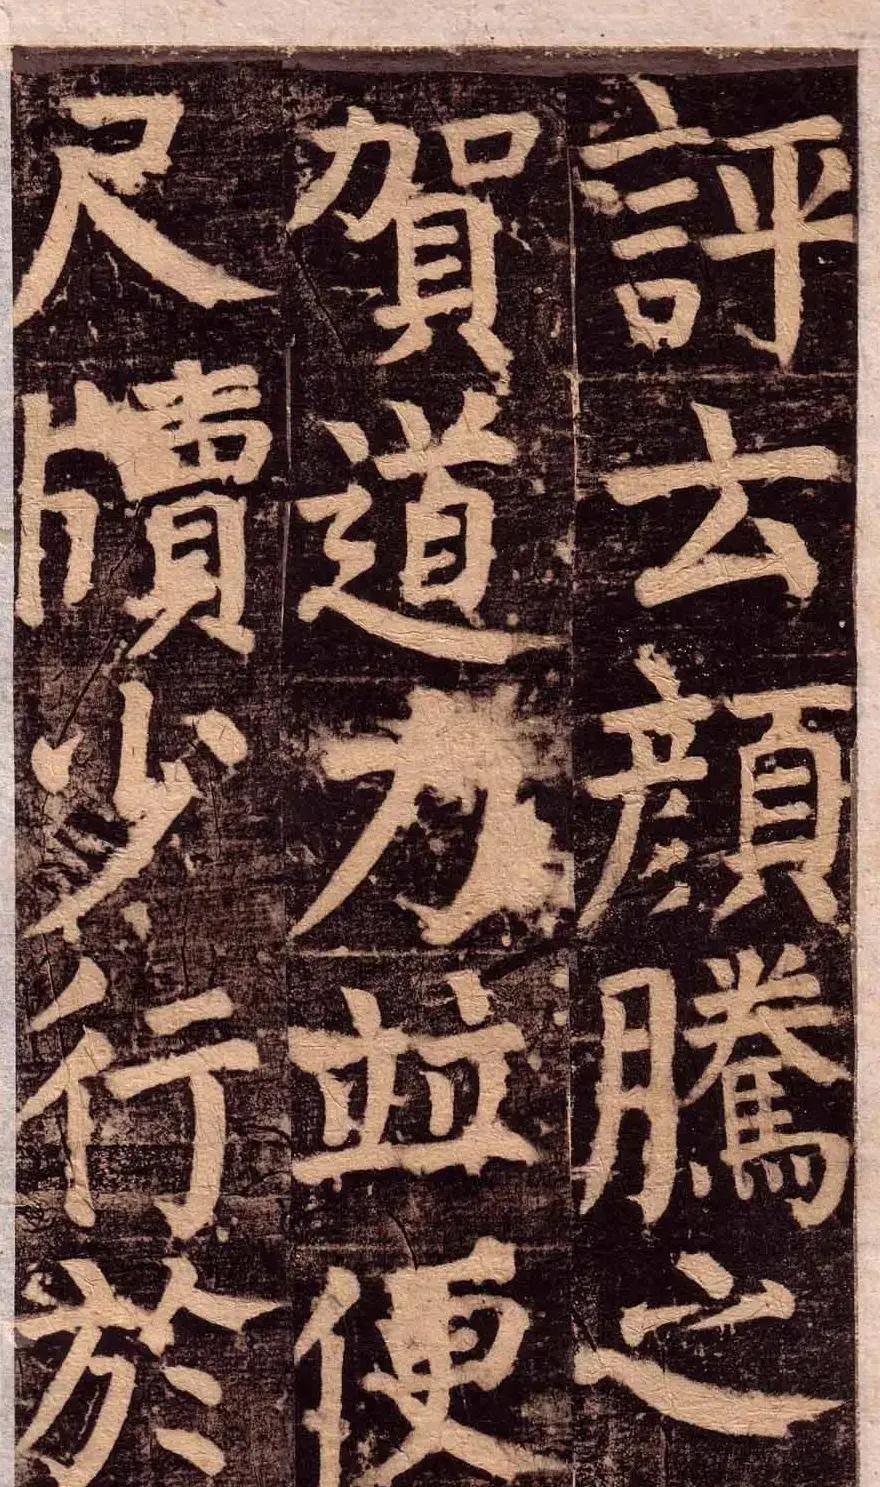 評云顏騰之
賀道力並便
尺牘少行於